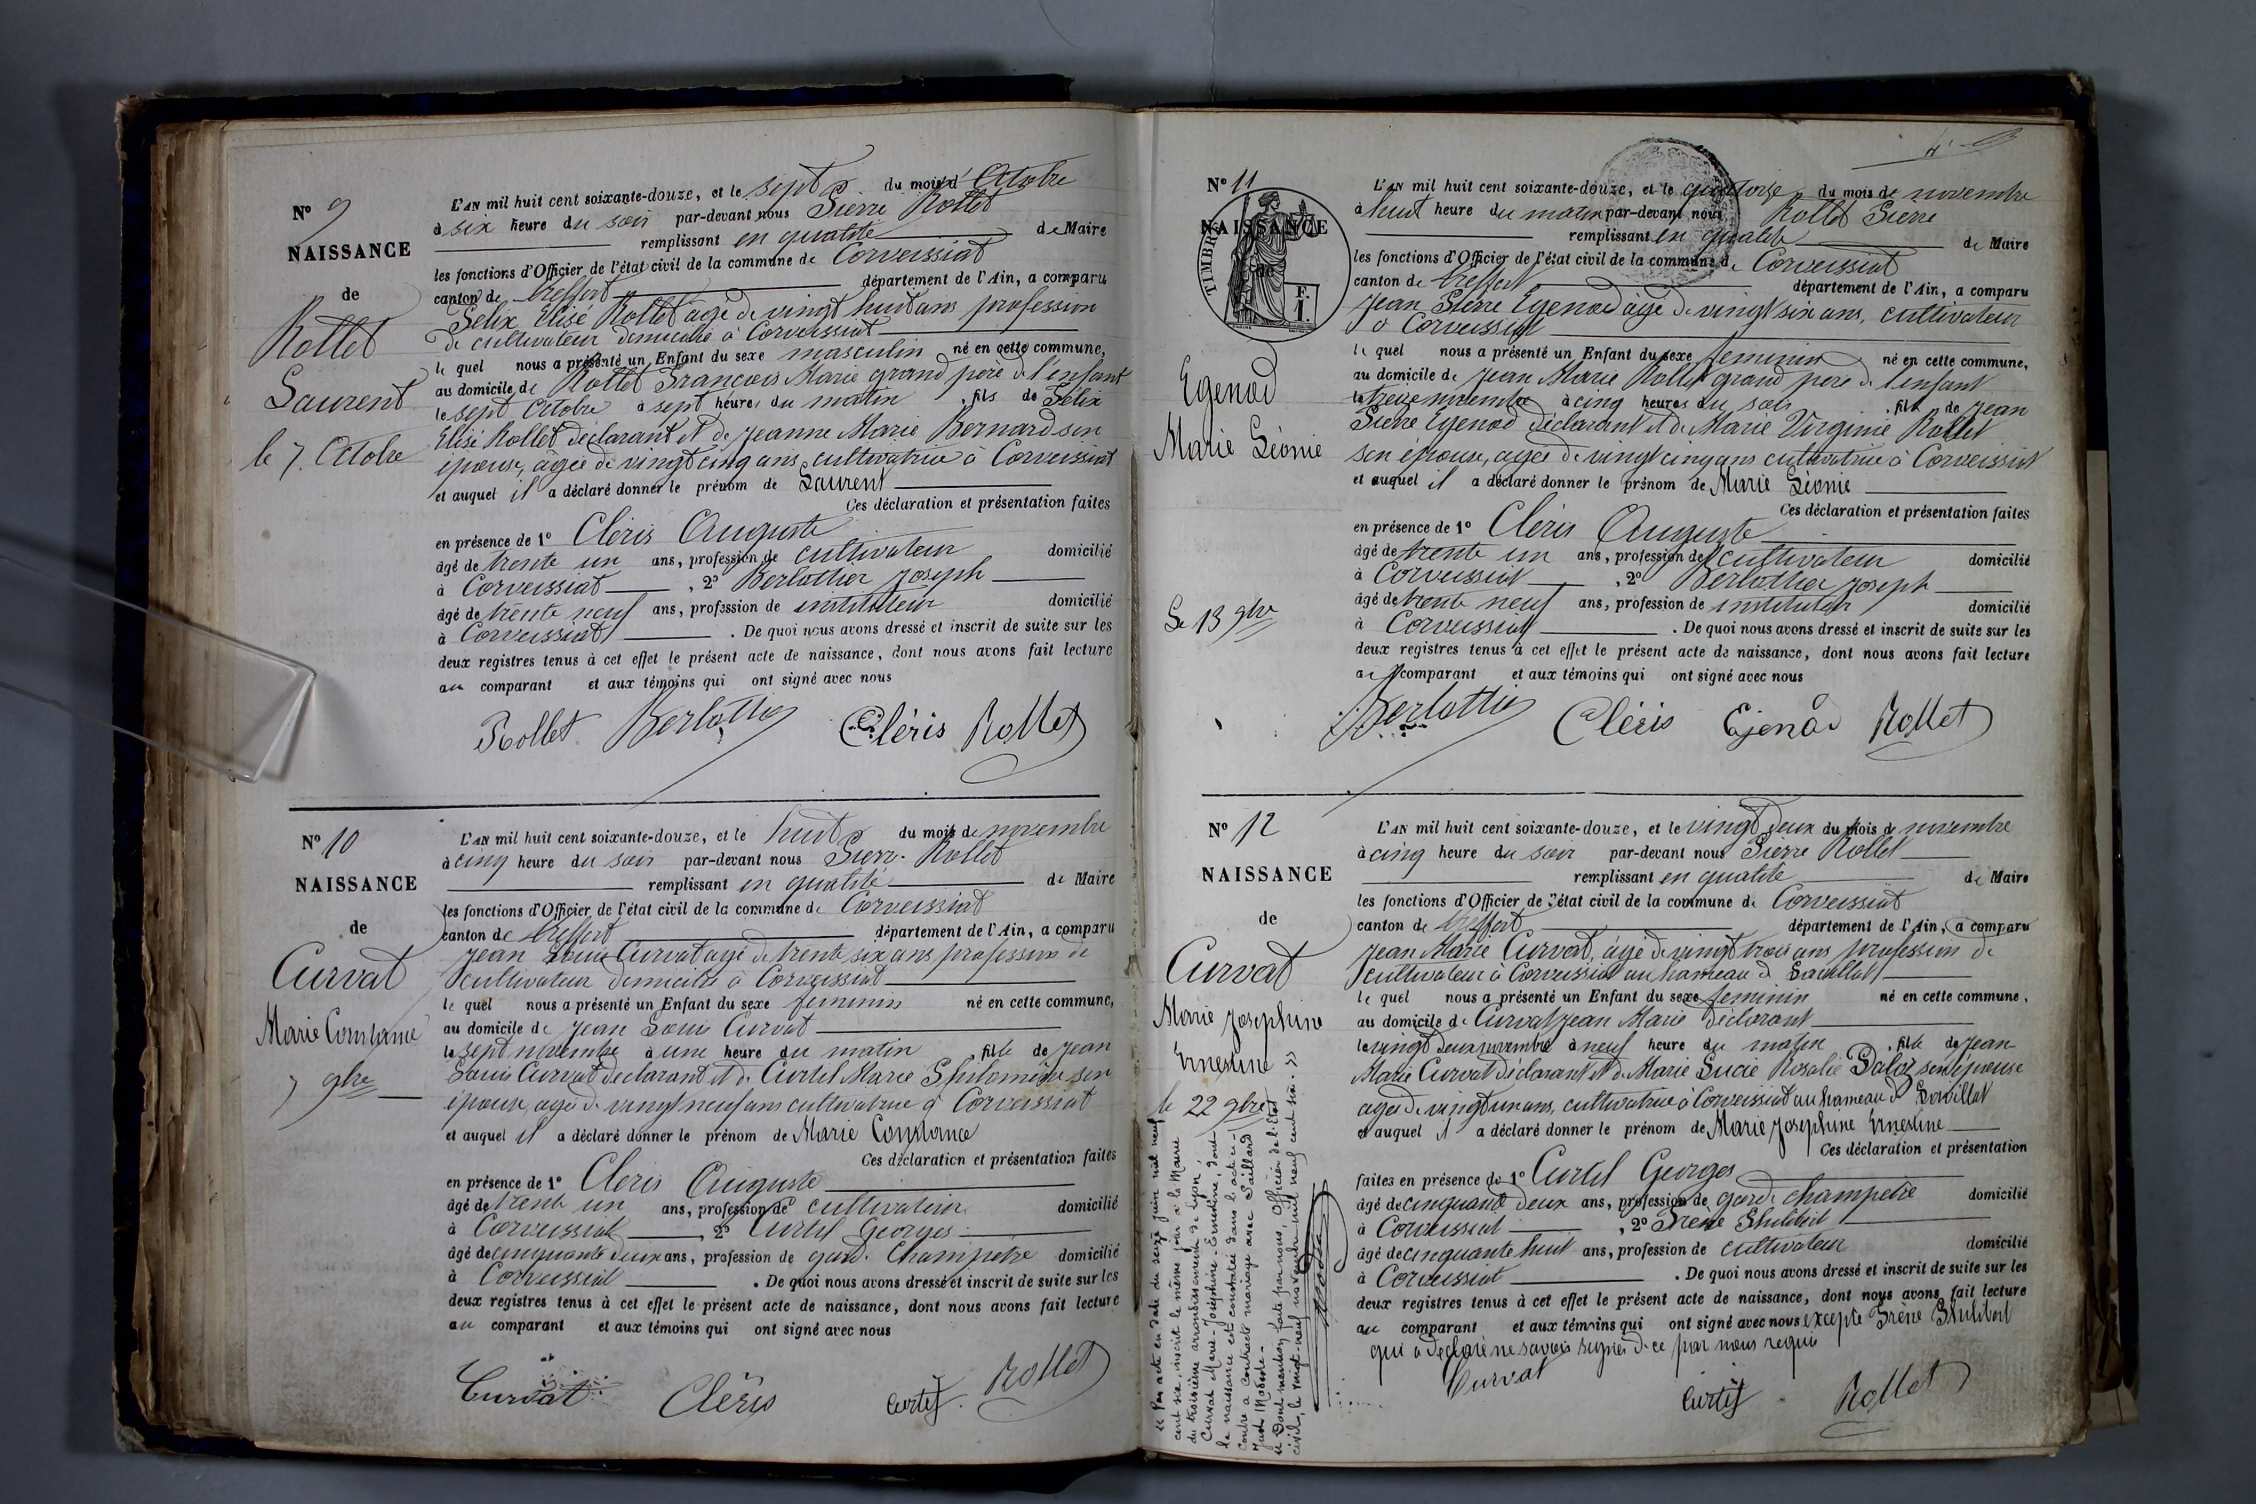 No 9
NAISSANCE
de
Rollet
Laurent
le 7. Octobre
L'AN mil huit cent soixante-douze, et le sept du mois d'Octobre
à six heure du soir par-devant nous Pierre Rollet
remplissant en qualité de Maire
les fonctions d'Officier de l'état civil de la commune de Corveissiat
canton de treffort département de l'Ain, a comparu
Félix Elisé Rollet agé de vingt huit ans profession
de cultivateur demicilié à Corveissiat
le quel nous a présenté un Enfant du sexe masculin né en cette commune,
au domicile de Rollet François Marie grand père de l'enfant
le sept Octobre à sept heures du matin , fils de Félix
Elisé Rollet déclarant et de Jeanne Marie Bernard son
épouse, âgée de vingt cinq ans cultivatrice à Corveissiat
et auquel il a déclaré donner le prénom de Laurent
Ces déclaration et présentation faites
en présence de 1° Cléris Auguste
âgé de trente un ans, profession de cultivateur domicilié
à Corveissiat , 2° Berlothier Joseph
âgé de trente neuf ans, profession de instituteur domicilié
à Corveissiat . De quoi nous avons dressé et inscrit de suite sur les
deux registres tenus à cet effet le présent acte de naissance, dont nous avons fait lecture
au comparant et aux témoins qui ont signé avec nous
Rollet Cléris Rollet
No 10
NAISSANCE
de
Curvat
Marie Constance
7 9bre
L'AN mil huit cent soixante-douze, et le huit du mois de novembre
à cinq heure du soir par-devant nous Pierre Rollet
remplissant en qualité de Maire
les fonctions d'Officier de l'état civil de la commune de Corveissiat
canton de treffort département de l'Ain, a comparu
Jean Louis Curvat agé de trente six ans profession de
cultivateur demicilié à Corveissiat
le quel nous a présenté un Enfant du sexe feminin né en cette commune,
au domicile de Jean Louis Curvat
le sept novembre à une heure du matin , fille de Jean
Louis Curvat déclarant et de Curtil Marie Philomène son
épouse, agée de vingt neuf ans cultivatrice à Corveissiat
et auquel il a déclaré donner le prénom de Marie Constance
Ces déclaration et présentation faites
en présence de 1° Cléris Auguste
âgé de trente un ans, profession de cultivateur domicilié
à Corveissiat , 2° Curtil Georges
âgé de cinquante deux ans, profession de garde Champêtre domicilié
à Corveissiat . De quoi nous avons dressé et inscrit de suite sur les
deux registres tenus à cet effet le présent acte de naissance, dont nous avons fait lecture
au comparant et aux témoins qui ont signé avec nous
Curvat Cléris Curtil Rollet
No 11
NAISSANCE
TIMBRE
F.
1.
Egenod
Marie Léonie
Le 13 9bre
L'AN mil huit cent soixante-douze, et le quatorze du mois de novembre
à huit heure du matin par-devant nous Rollet Pierre
remplissant en qualité de Maire
les fonctions d'Officier de l'état civil de la commune de Corveissiat
canton de treffort département de l'Ain, a comparu
Jean Pierre Egenod âgé de vingt six ans, cultivateur
à Corveissiat
le quel nous a présenté un Enfant du sexe feminin né en cette commune,
au domicile de Jean Marie Rollet grand père de l'enfant
le treize novembre à cinq heures du soir , fille de Jean
Pierre Egenod déclarant et de Marie Virginie Rollet
son épouse, agée de vingt cinq ans cultivatrice à Corveissiat
et auquel il a déclaré donner le prénom de Marie Léonie
Ces déclaration et présentation faites
en présence de 1° Cléris Auguste
âgé de trente un ans, profession de cultivateur domicilié
à Corveissiat , 2° Berlothier Joseph
âgé de trente neuf ans, profession de instituteur domicilié
à Corveissiat . De quoi nous avons dressé et inscrit de suite sur les
deux registres tenus à cet effet le présent acte de naissance, dont nous avons fait lecture
au comparant et aux témoins qui ont signé avec nous
Cléris Ejenod Rollet
No 12
NAISSANCE
de
Curvat
Marie Josephine
Ernestine
le 22 9bre
L'AN mil huit cent soixante-douze, et le vingt deux du mois de novembre
à cinq heure du soir par-devant nous Pierre Rollet
remplissant en qualité de Maire
les fonctions d'Officier de l'état civil de la commune de Corveissiat
canton de treffort département de l'Ain, a comparu
Jean Marie Curvat, âgé de vingt trois ans profession de
cultivateur à Corveissiat au hameau de
le quel nous a présenté un Enfant du sexe feminin né en cette commune,
au domicile de Curvat Jean Marie déclarant
le vingt deux novembre à neuf heure du matin , fille de Jean
Marie Curvat déclarant et de Marie Lucie Rosalie son épouse
agée de vingt un ans, cultivatrice à Corveissiat au hameau de
et auquel il a déclaré donner le prénom de Marie Josephine Ernestine
Ces déclaration et présentation
faites en présence de 1° Curtil Georges
âgé de cinquante deux ans, profession de garde champetre domicilié
à Corveissiat , 2° Frène Philibert
âgé de cinquante huit ans, profession de cultivateur domicilié
à Corveissiat . De quoi nous avons dressé et inscrit de suite sur les
deux registres tenus à cet effet le présent acte de naissance, dont nous avons fait lecture
au comparant et aux témoins qui ont signé avec nous excepté Frène Philibert
qui a déclaré ne savoir signer de ce par nous requis
Curvat Curtil Rollet
« Par acte en date du seize juin mil neuf
cent six, inscrit le même jour à la Mairie
du troisième arrondissement de Lyon,
Curvat Marie-Joséphine-Ernestine, dont
la naissance est constatée dans l'acte ci-
contre a contracté mariage avec Paillard
Just Modeste.-
« Dont mention faite par nous, Officier de l'Etat
civil, le vingt-neuf novembre mil neuf cent six. »